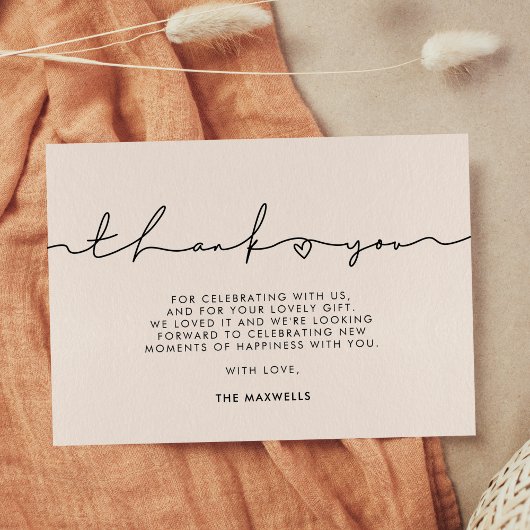 thank you
FOR CELEBRATING WITH US,
AND FOR YOUR LOVELY GIFT.
WE LOVED IT AND WE'RE LOOKING
FORWARD TO CELEBRATING NEW
MOMENTS OF HAPPINESS WITH YOU.
WITH LOVE,
THE MAXWELLS